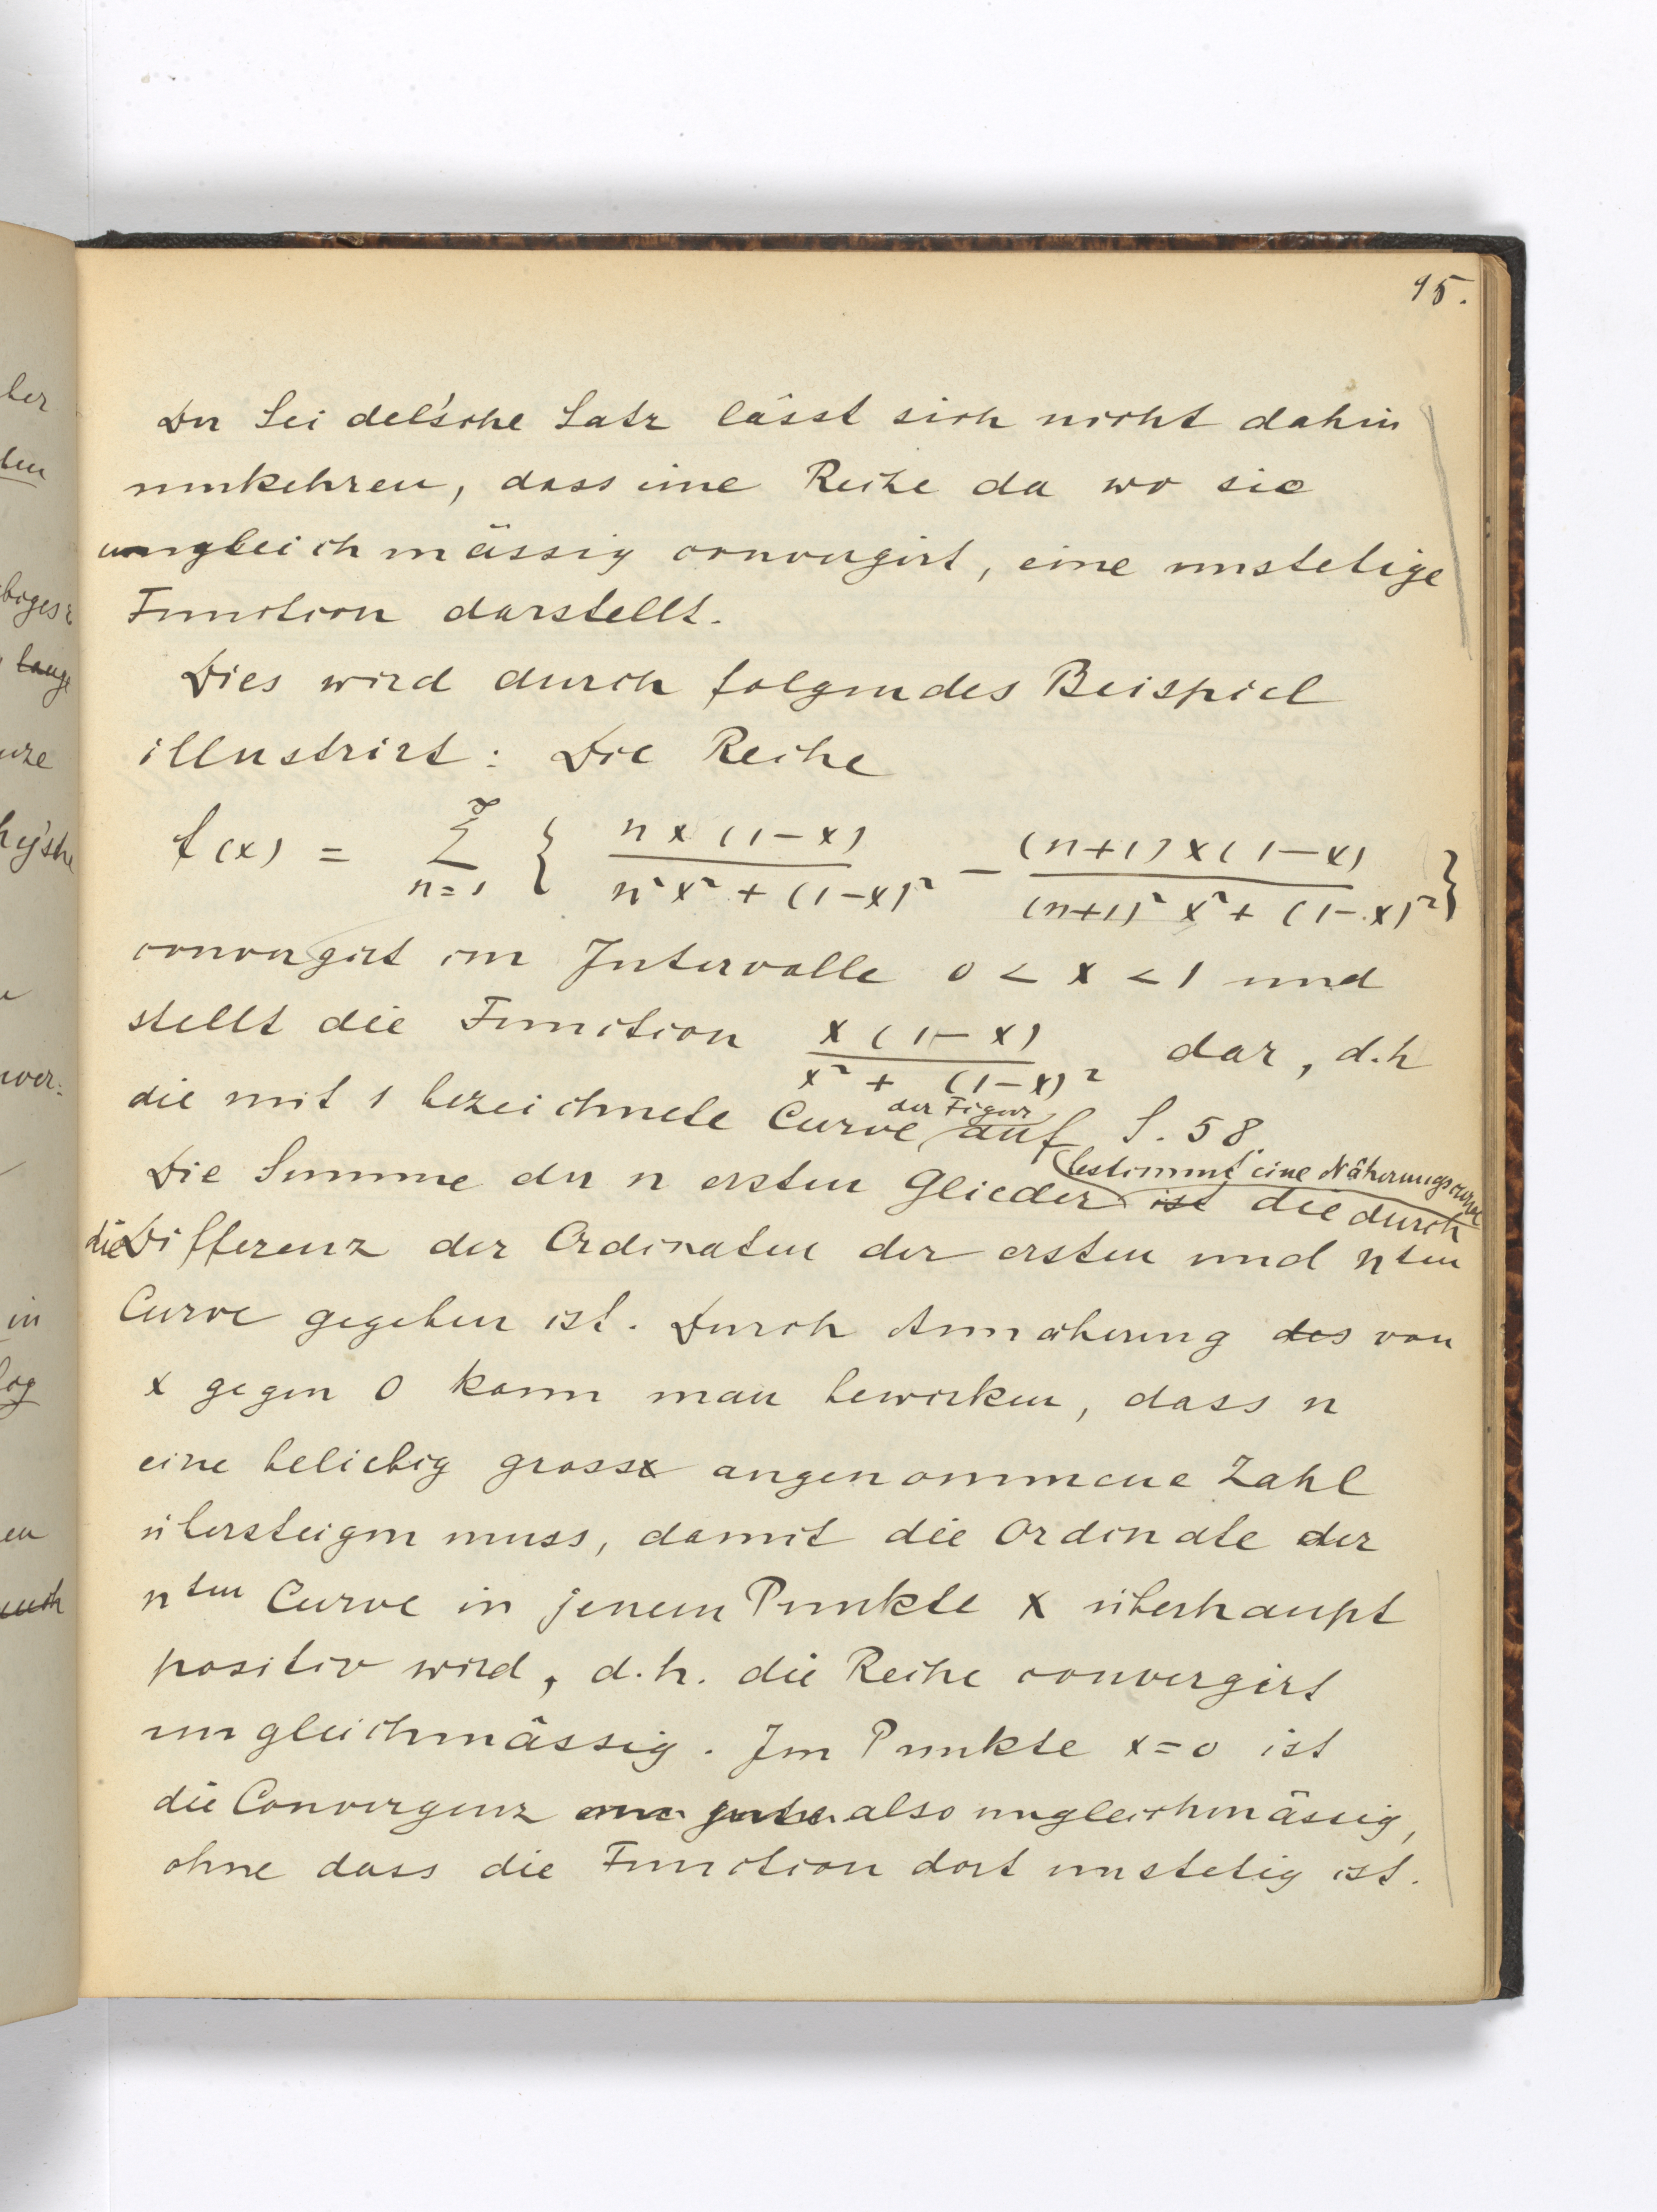 95.
Der Seidel'sche Satz lässt sich nicht dahin
umkehren, dass eine Reihe da wo sie
ungleichmässig convergirt, eine unstetige
Function darstellt.
Dies wird durch folgendes Beispiel
illustrirt: Die Reihe
f(x) = ∑_{n=1}^{∞} { \frac{nx(1-x)}{n²x² + (1-x)²} - \frac{(n+1)x(1-x)}{(n+1)²x² + (1-x)²} }
convergirt im Intervalle 0 < x < 1 und
stellt die Function \frac{x(1-x)}{x² + (1-x)²} dar, d.h
die mit 1 bezeichnete Curve der Figur auf S. 58.
Die Summe der n ersten Glieder bestimmt eine Näherungscurve ist die durch
die Differenz der Ordinaten der ersten und nten
Curve gegeben ist. Durch Annäherung des von
x gegen 0 kann man bewirken, dass n
eine beliebig gross angenommene Zahl
übersteigen muss, damit die Ordinate der
nten Curve in jenem Punkte x überhaupt
positiv wird, d.h. die Reihe convergirt
ungleichmässig. Im Punkte x=0 ist
die Convergenz also ungleichmässig,
ohne dass die Function dort unstetig ist.
ber
ben
lange
in
log
en